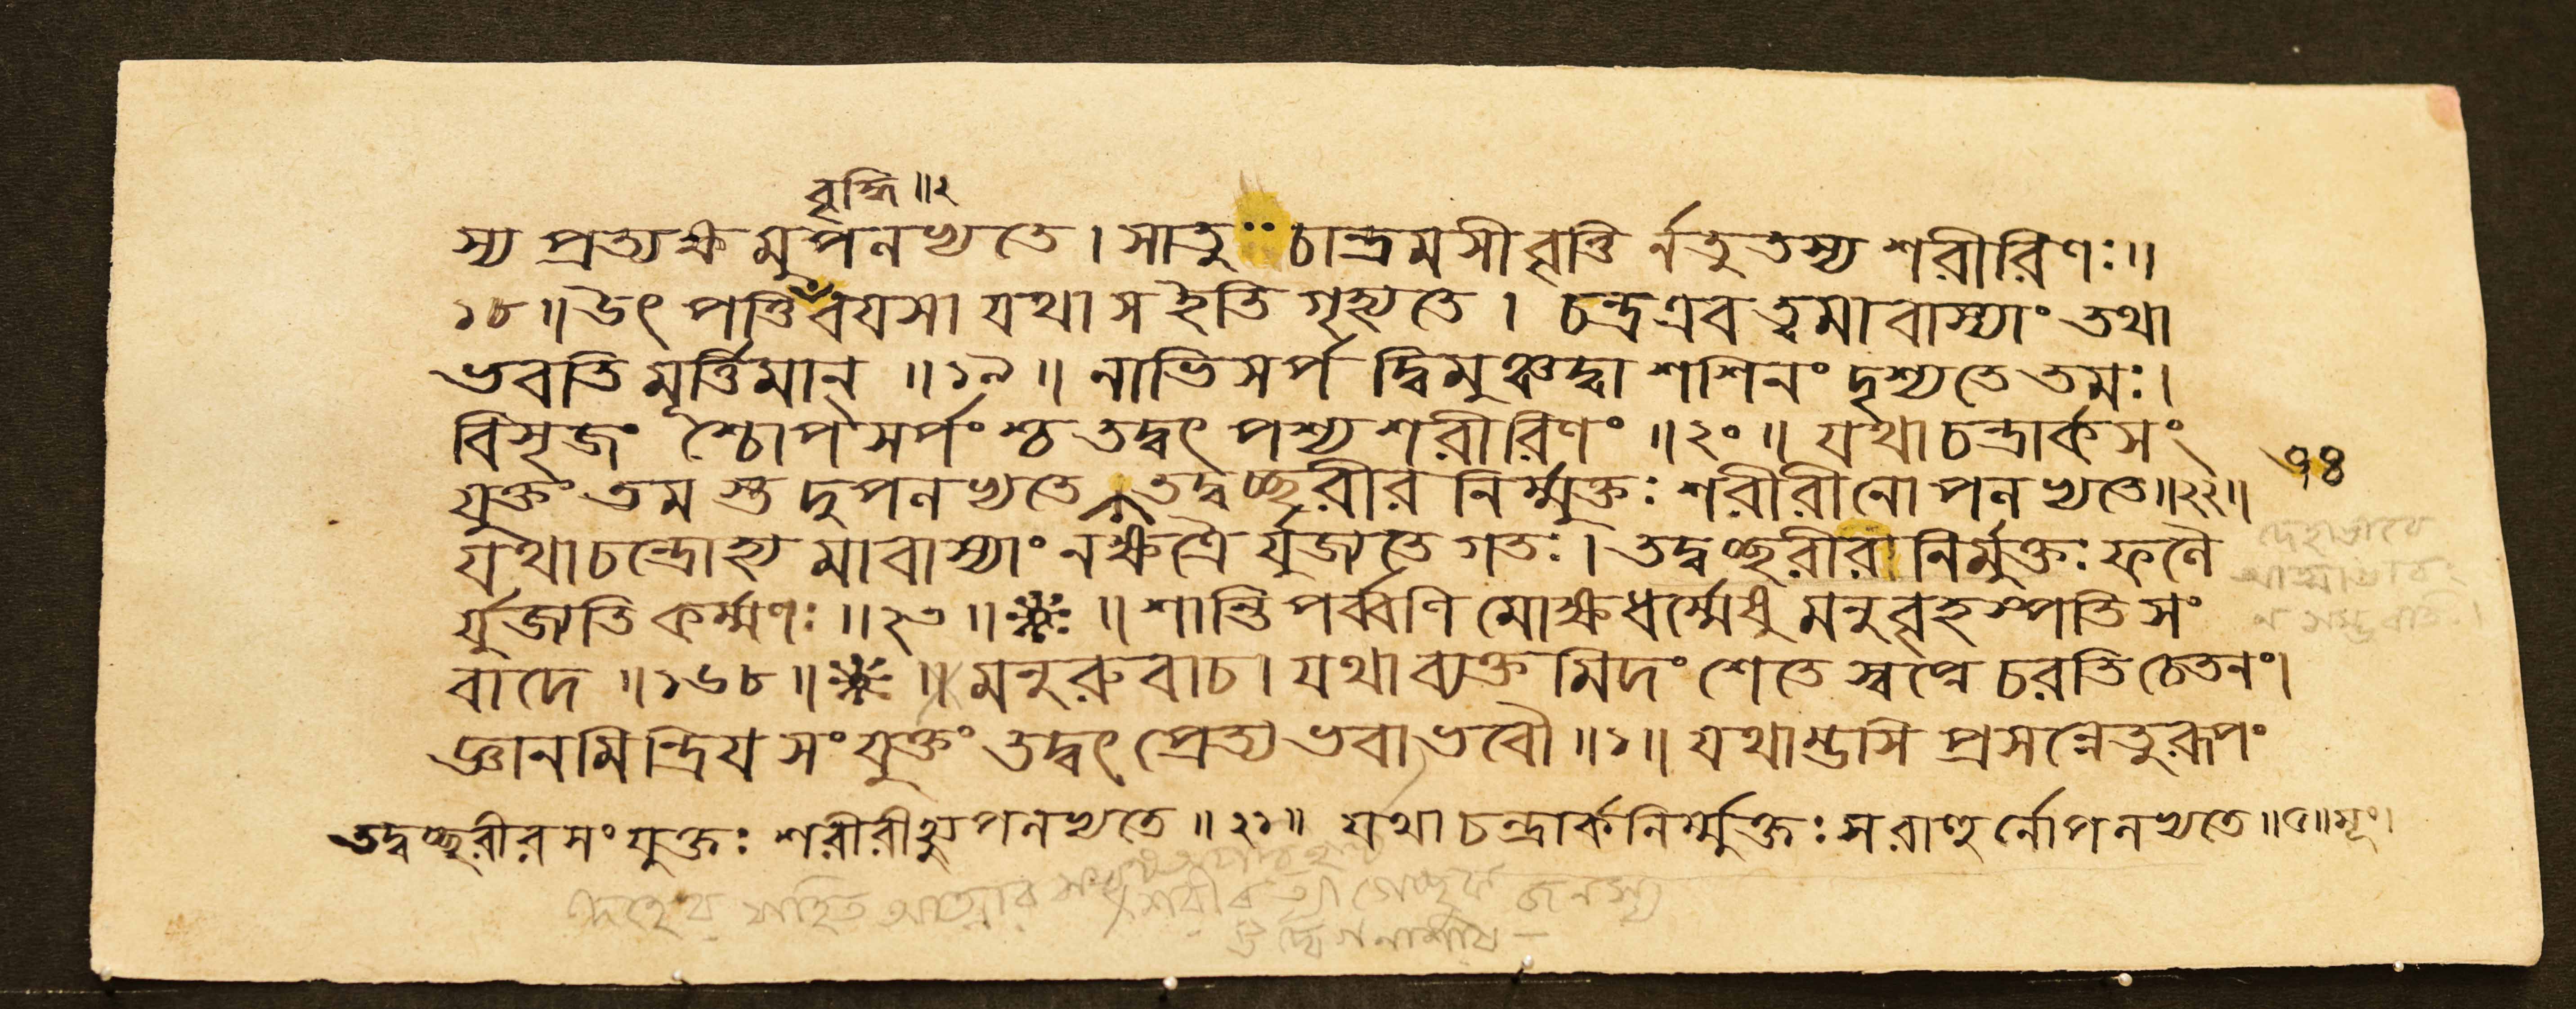 বৃদ্ধি ॥২
স্য প্রত্যক্ষমুপলভ্যতে । সাতু চান্দ্রমসীবৃত্তি র্নতুতস্য শরীরিণঃ ॥
১৮ ॥ উৎপত্তিবৃদ্ধিবয়সা যথা স ইতি গৃহ্যতে । চন্দ্র এব ত্বমাবাস্যাং তথা
ভবতি মূর্ত্তিমান্ ॥ ১৯ ॥ নাভিসর্পদ্বিমুঞ্চদ্বা শশিনং দৃশ্যতে তমঃ ।
বিসৃজংশ্চোপসর্পংশ্চ তদ্বৎ পশ্য শরীরিণং ॥ ২০ ॥ যথা চন্দ্রার্কসং
যুক্তং তমস্তদুপলভ্যতে তদ্বচ্ছরীর নির্ম্মুক্তঃ শরীরীনোপলভ্যতে ॥ ২২ ॥
যথা চন্দ্রোহ্যমাবাস্যাং নক্ষত্রৈর্যুজ্যতে গতঃ । তদ্বচ্ছরীর নির্মুক্তঃ ফলৈ
র্যুজ্যতি কর্ম্মণঃ ॥ ২৩ ॥ * ॥ শান্তিপর্ব্বণি মোক্ষধর্ম্মেষু মনুবৃহস্পতিসং
বাদে ॥ ১৬৮ ॥ * ॥ মনুরুবাচ । যথা ব্যক্তমিদং শেতে স্বপ্নে চরতি চেতনং ।
জ্ঞানমিন্দ্রিয়সংযুক্তং তদ্বৎ প্রেত্য ভবাভবৌ ॥ ১ ॥ যথাম্ভসি প্রসন্নেতুরূপং
৭৪
তদ্বচ্ছরীরসংযুক্তঃ শরীরীত্যুপলভ্যতে ॥ ২১ ॥ যথা চন্দ্রার্কনির্ম্মুক্তঃ সরাহুর্নোপলভ্যতে ॥৫॥
দেহাভাবে